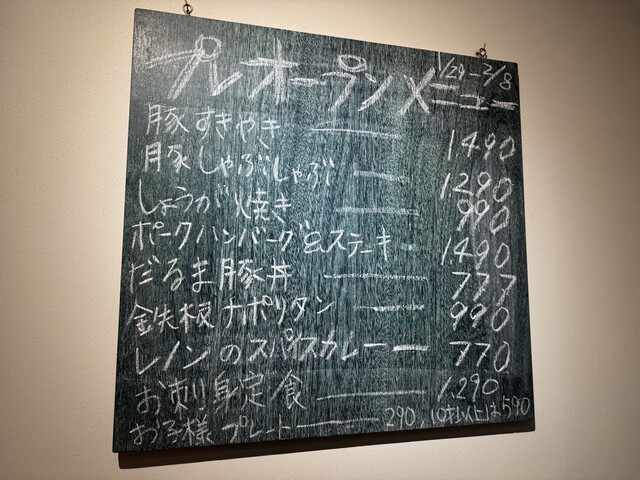 1/29-2/8
プレオープンメニュー
豚すきやき 1490
豚しゃぶしゃぶ 1290
しょうが焼き 990
ポークハンバーグ&ステーキ 1490
だるま豚丼 777
鉄板ナポリタン 990
レノンのスパイスカレー 770
お刺身定食 1,290
お子様プレート 290 10才以上は590